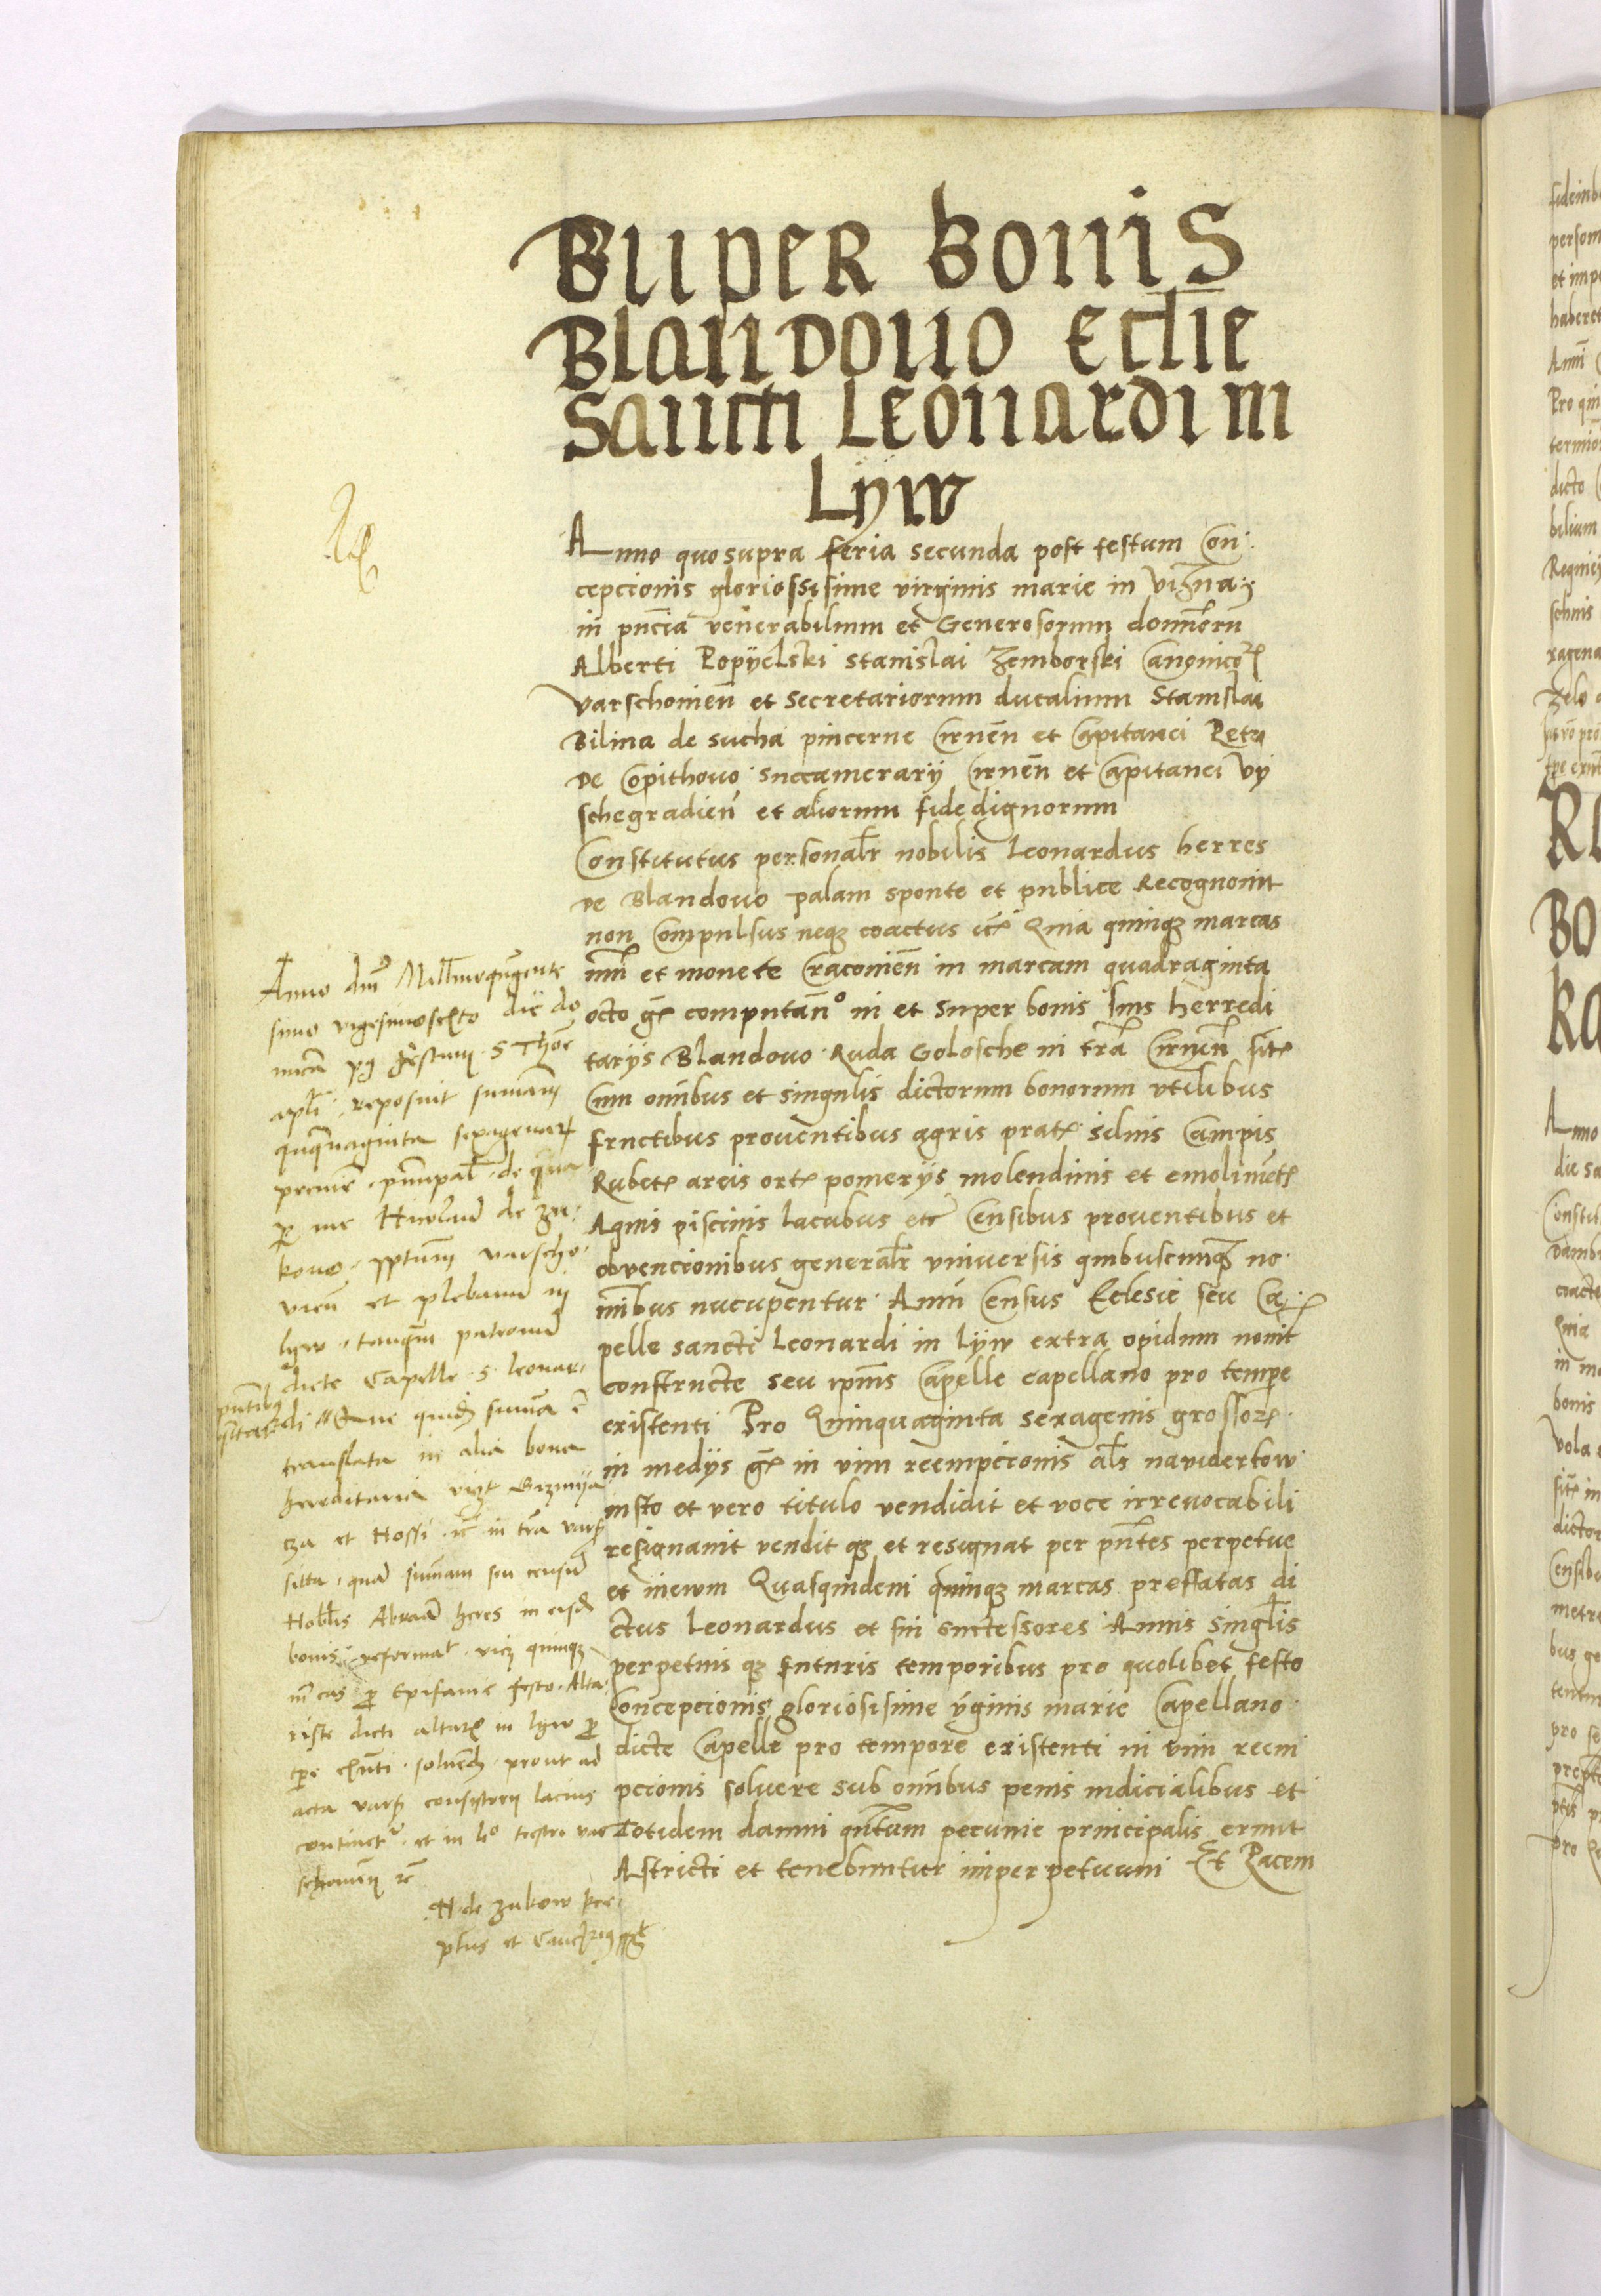 Super bonis
Blandovo ecclie
Sancti Leonardi in
Lyw
Anno quo supra feria secunda post festum Con
cepcionis gloriossisime virginis marie in Vizna
in pncia venerabilium et Generosorum dominorum
Alberti Popyelski Stanislai Zemborski Canonicor
Varschovien et Secretariorum ducalium Stanislai
Bilina de Sucha pincerne Cirnen et Capitanei Petri
de Copithovo Succamerarij Cirnen et Capitanei Vy
schegradien et aliorum fidedignorum
Constitutus personalr nobilis Leonardus herres
de Blandovo palam sponte et publice Recognovit
non Compulsus neqz coactus etc Quia quinqz marcas
nri et monete Cracovien in marcam quadraginta
octo gr computan in et super bonis suis herredi
tarijs Blandovo Ruda Golosche in tra Cirnen sit
Cum omibus et singulis dictorum bonorum vtilibus
fructibus proventibus agris prat silvis Campis
Rubet areis ort pomerijs molendinis et emolimet
Aquis piscinis lacubus etc Censibus proventibus et
obvencionibus generalr vniversis quibuscumqz no
minibus nucupentur Annui Census Eclesie seu Ca
pelle sancti Leonardi in Lyw extra opidum novit
constructe seu ipius Capelle capellano pro tempere
existenti Pro Quinquaginta sexagenis grossor
in medijs gr in vim reempcionis als navidertow
iusto et vero titulo vendidit et voce irrevocabili
resignavit vendit qz et resignat per pntes perpetue
et inewm Quasquidem quinqz marcas preffatas di
ctus Leonardus et sui successores Annis singlis
perpetuis qz futuris temporibus pro quolibet festo
Concepcionis gloriosisime virginis marie Capellano
dicte Capelle pro tempore existenti in vim reem
pcionis solvere sub omibus penis iudicialibus et
Totidem damni quntum pecunie principalis erunt
Astricti et tenebuntur imperpetuum Et Pacem
Anno dni Millimoquingente
simo vigesimosexto die do
nica post festum S Thoe
apli reposuit sumam
quinquaginta sexagenar
pecunie principal de qua
per me Nicolaum de Zu
kovo pptum varscho
vien et plebanum in
lyw tanquam patronum
dicte Capelle S leonar
di Que quidem suma e
translata in alia bona
hereditaria
et Hossi in tra vars
sitta quam sumam seu censum
Nobilis Abraam heres in eisdem
bonis reformat vicz quinqz
mrcas pro Epifanie festo Alta
riste dicti altaris in lyw pro
tpe exnti solvend prout ad
acta vars consistorij lacius
continet et in lo terstri var
schovien etc
N de Zukow
pptus et Cancrius